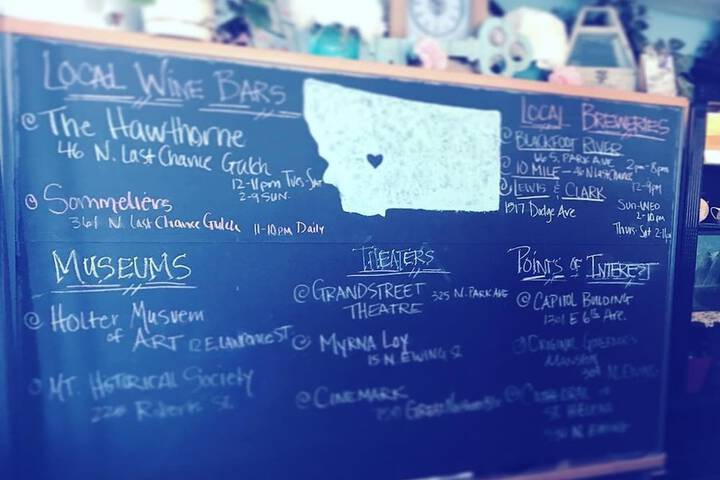 LOCAL WINE BARS
@ THE HAWTHORNE
46 N. LAST CHANCE GULCH
12-11pm TUES-SAT
2-9 SUN.
@ SOMMELIERS
361 N. LAST CHANCE GULCH 11-10PM DAILY
LOCAL BREWERIES
@ BLACKFOOT RIVER
66 S. PARK AVE 2pm-8pm
@ 10 MILE - 48 N LAST CHANCE
12-9pm
@ LEWIS & CLARK
1517 Dodge Ave
SUN-WED
2-10pm
Thurs-Sat
MUSEUMS
@ HOLTER MUSEUM
OF ART 12 E. LAWRENCE ST
@ MT. HISTORICAL SOCIETY
225 Roberts St.
THEATERS
@ GRANDSTREET 325 N. PARK AVE
THEATRE
@ MYRNA LOY
15 N. EWING St
@ CINEMARK
GREAT NORTHERN
POINTS OF INTEREST
@ CAPITOL BUILDING
1301 E 6th Ave.
@ ORIGINAL GOVERNORS
MANSION
304 N. EWING
@ CATHEDRAL OF
ST. HELENA
530 N. EWING